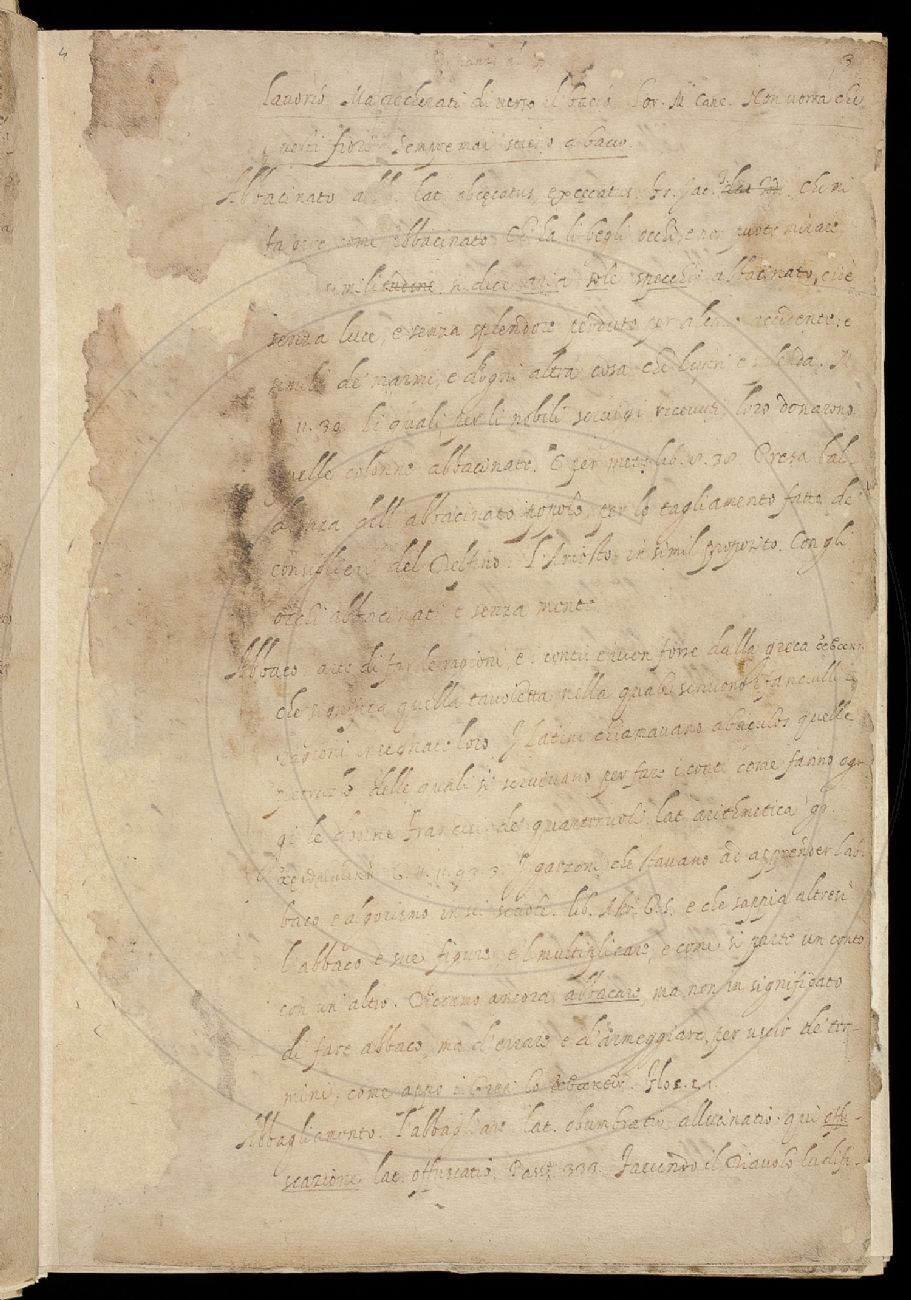 4
3
lavorío. Ma inchinati di verso il bacío. Lor. M. Canz. Non vorrà che
questi fiori sempre mai sieno a bacío.
Abbacinato add. lat. obcęcatus, excęcatus. Fr. Jac. T. che mi
fa dire come abbacinato, chi ha li begli occhi, e non puote mirare
si dice aria sole specchio abbacinato, cioè
senza luce, e senza splendore perduto per alcuno accidente; e
simili de marmi, e d'ogni altra cosa che lustri e splenda. M.
11. 30. li quali per li nobili servigi ricevuti loro donarono
quelle colonne abbacinate. E per met. lib. 8. 38. Presa bal-
danza dell' abbacinato popolo, per lo tagliamento fatto de'
consiglieri del Delfino. L'Ariosto in simil proposito. Con gli
occhi abbacinati e senza mente.
Abbaco arte di far le ragioni, e i conti: e vien forse dalla greca
che significa quella tavoletta nella quale scrivono i fanciulli le
ragioni insegnate loro. I Latini chiamavano abaculos quelle
pietruzze delle quali si servivano per fare i conti come fanno og-
gi le donne Francesi de' quarteruoli, lat. arithmetica gr.
ἀριθμητική G. V. 11. 93. 3. I garzoni che stavano ad apprender l'ab-
baco e algorismo in sei scuole. lib. Astr. e che sappia altresì
l'abbaco e sue figure, e'l multiplicare, e come si parte un conto
con un' altro. Diciamo ancora abbacare, ma non in significato
di fare abbaco, ma d'errare e d'armeggiare, per uscir de' ter-
mini, come appo i Greci lo
Abbagliamento. L'abbagliare lat. obumbratio, allucinatio: qui offu-
scazione lat. offuscatio. Pass. 333. Facendo il Diavolo ludifi-